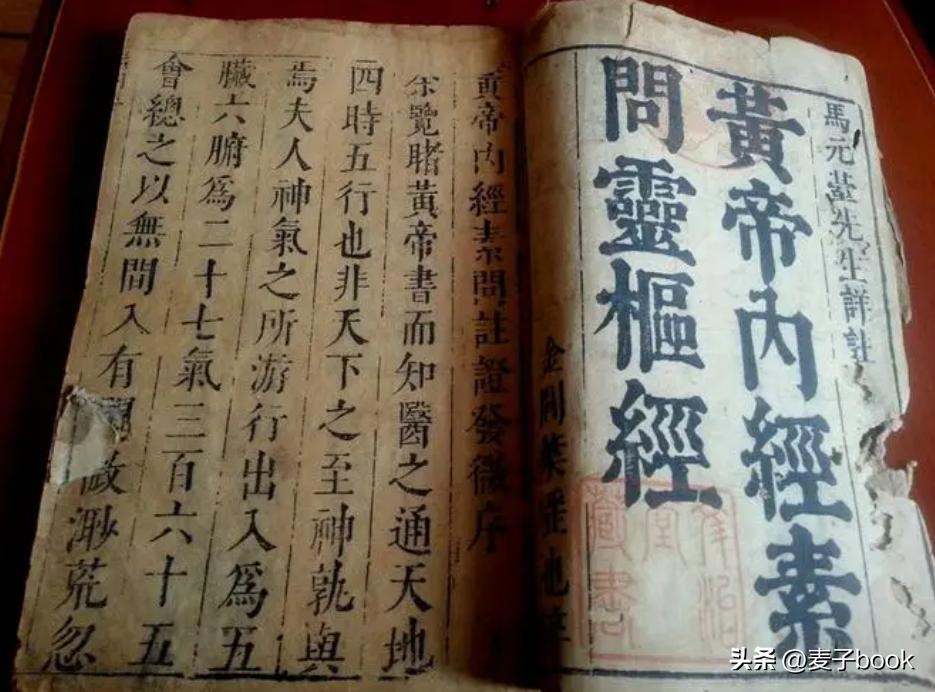 馬元臺先生詳註
黃帝內經素
問靈樞經
金閶葉
黃帝內經素問註證發微序
余覽睹黃帝書而知醫之通天地
四時五行也非天下之至神孰與
焉夫人神氣之所游行出入為五
臟六腑為二十七氣三百六十五
會總之以無間入有間微渺荒忽
藏書
头条 @麦子book